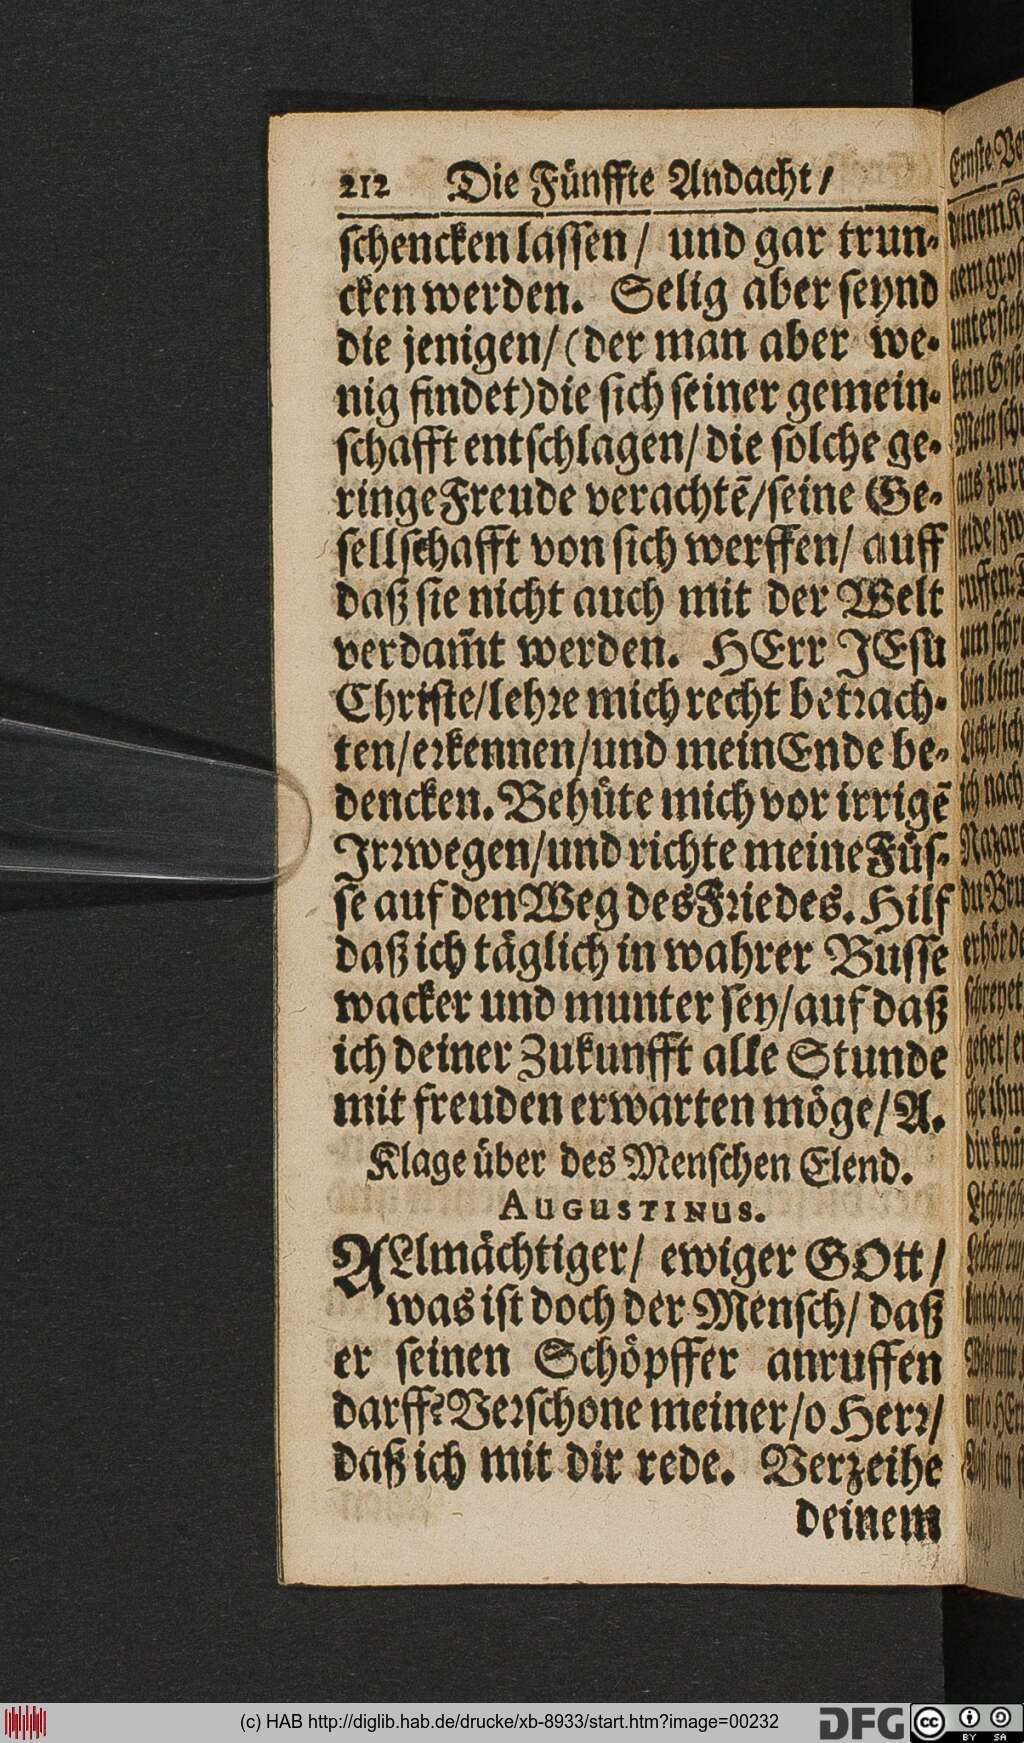 212 Die Fünffte Andacht /
schencken lassen / und gar trun-
cken werden. Selig aber seynd
die jenigen / (der man aber we-
nig findet) die sich seiner gemein-
schafft entschlagen / die solche ge-
ringe Freude verachtẽ / seine Ge-
sellschafft von sich werffen / auff
daß sie nicht auch mit der Welt
verdam̃t werden. HErr JEsu
Christe / lehre mich recht betrach-
ten / erkennen / und mein Ende be-
dencken. Behüte mich vor irrigẽ
Irrwegen / und richte meine Füs-
se auf den Weg des Friedes. Hilf
daß ich täglich in wahrer Busse
wacker und munter sey / auf daß
ich deiner Zukunfft alle Stunde
mit freuden erwarten möge / A.
Klage über des Menschen Elend.
AUGUSTINUS.
ALlmächtiger / ewiger GOtt /
was ist doch der Mensch / daß
er seinen Schöpffer anruffen
darff? Verschone meiner / o Herr /
daß ich mit dir rede. Verzeihe
deinem
(c) HAB http://diglib.hab.de/drucke/xb-8933/start.htm?image=00232
DFG
cc
BY SA